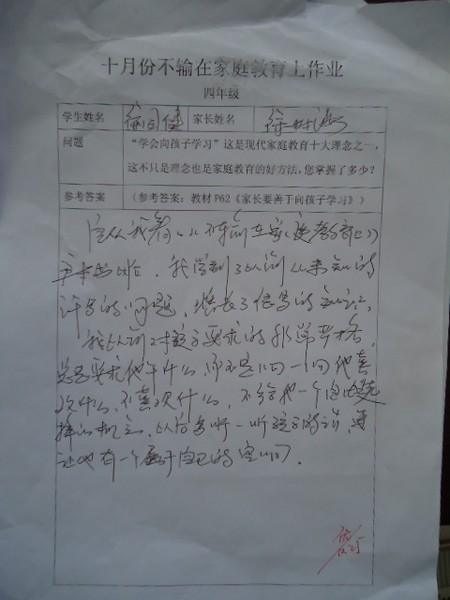 十月份不输在家庭教育上作业
四年级
学生姓名 徐 家长姓名 徐
问题 “学会向孩子学习”这是现代家庭教育十大理念之一，
这不只是理念也是家庭教育的好方法，您掌握了多少？
参考答案 （参考答案：教材 P62《家长要善于向孩子学习》）
自从我看《不输在家庭教育上》
这本书时，我学到了以前从来知的
许多的问题，增长了很多的知识，
我以前对孩子要求的非常严格，
总是要求他干什么，而不是问一问他喜
欢什么，不喜欢什么，不给他一个自由选
择的机会，以后多听一听孩子的话，
让他有一个属于自己的空间。